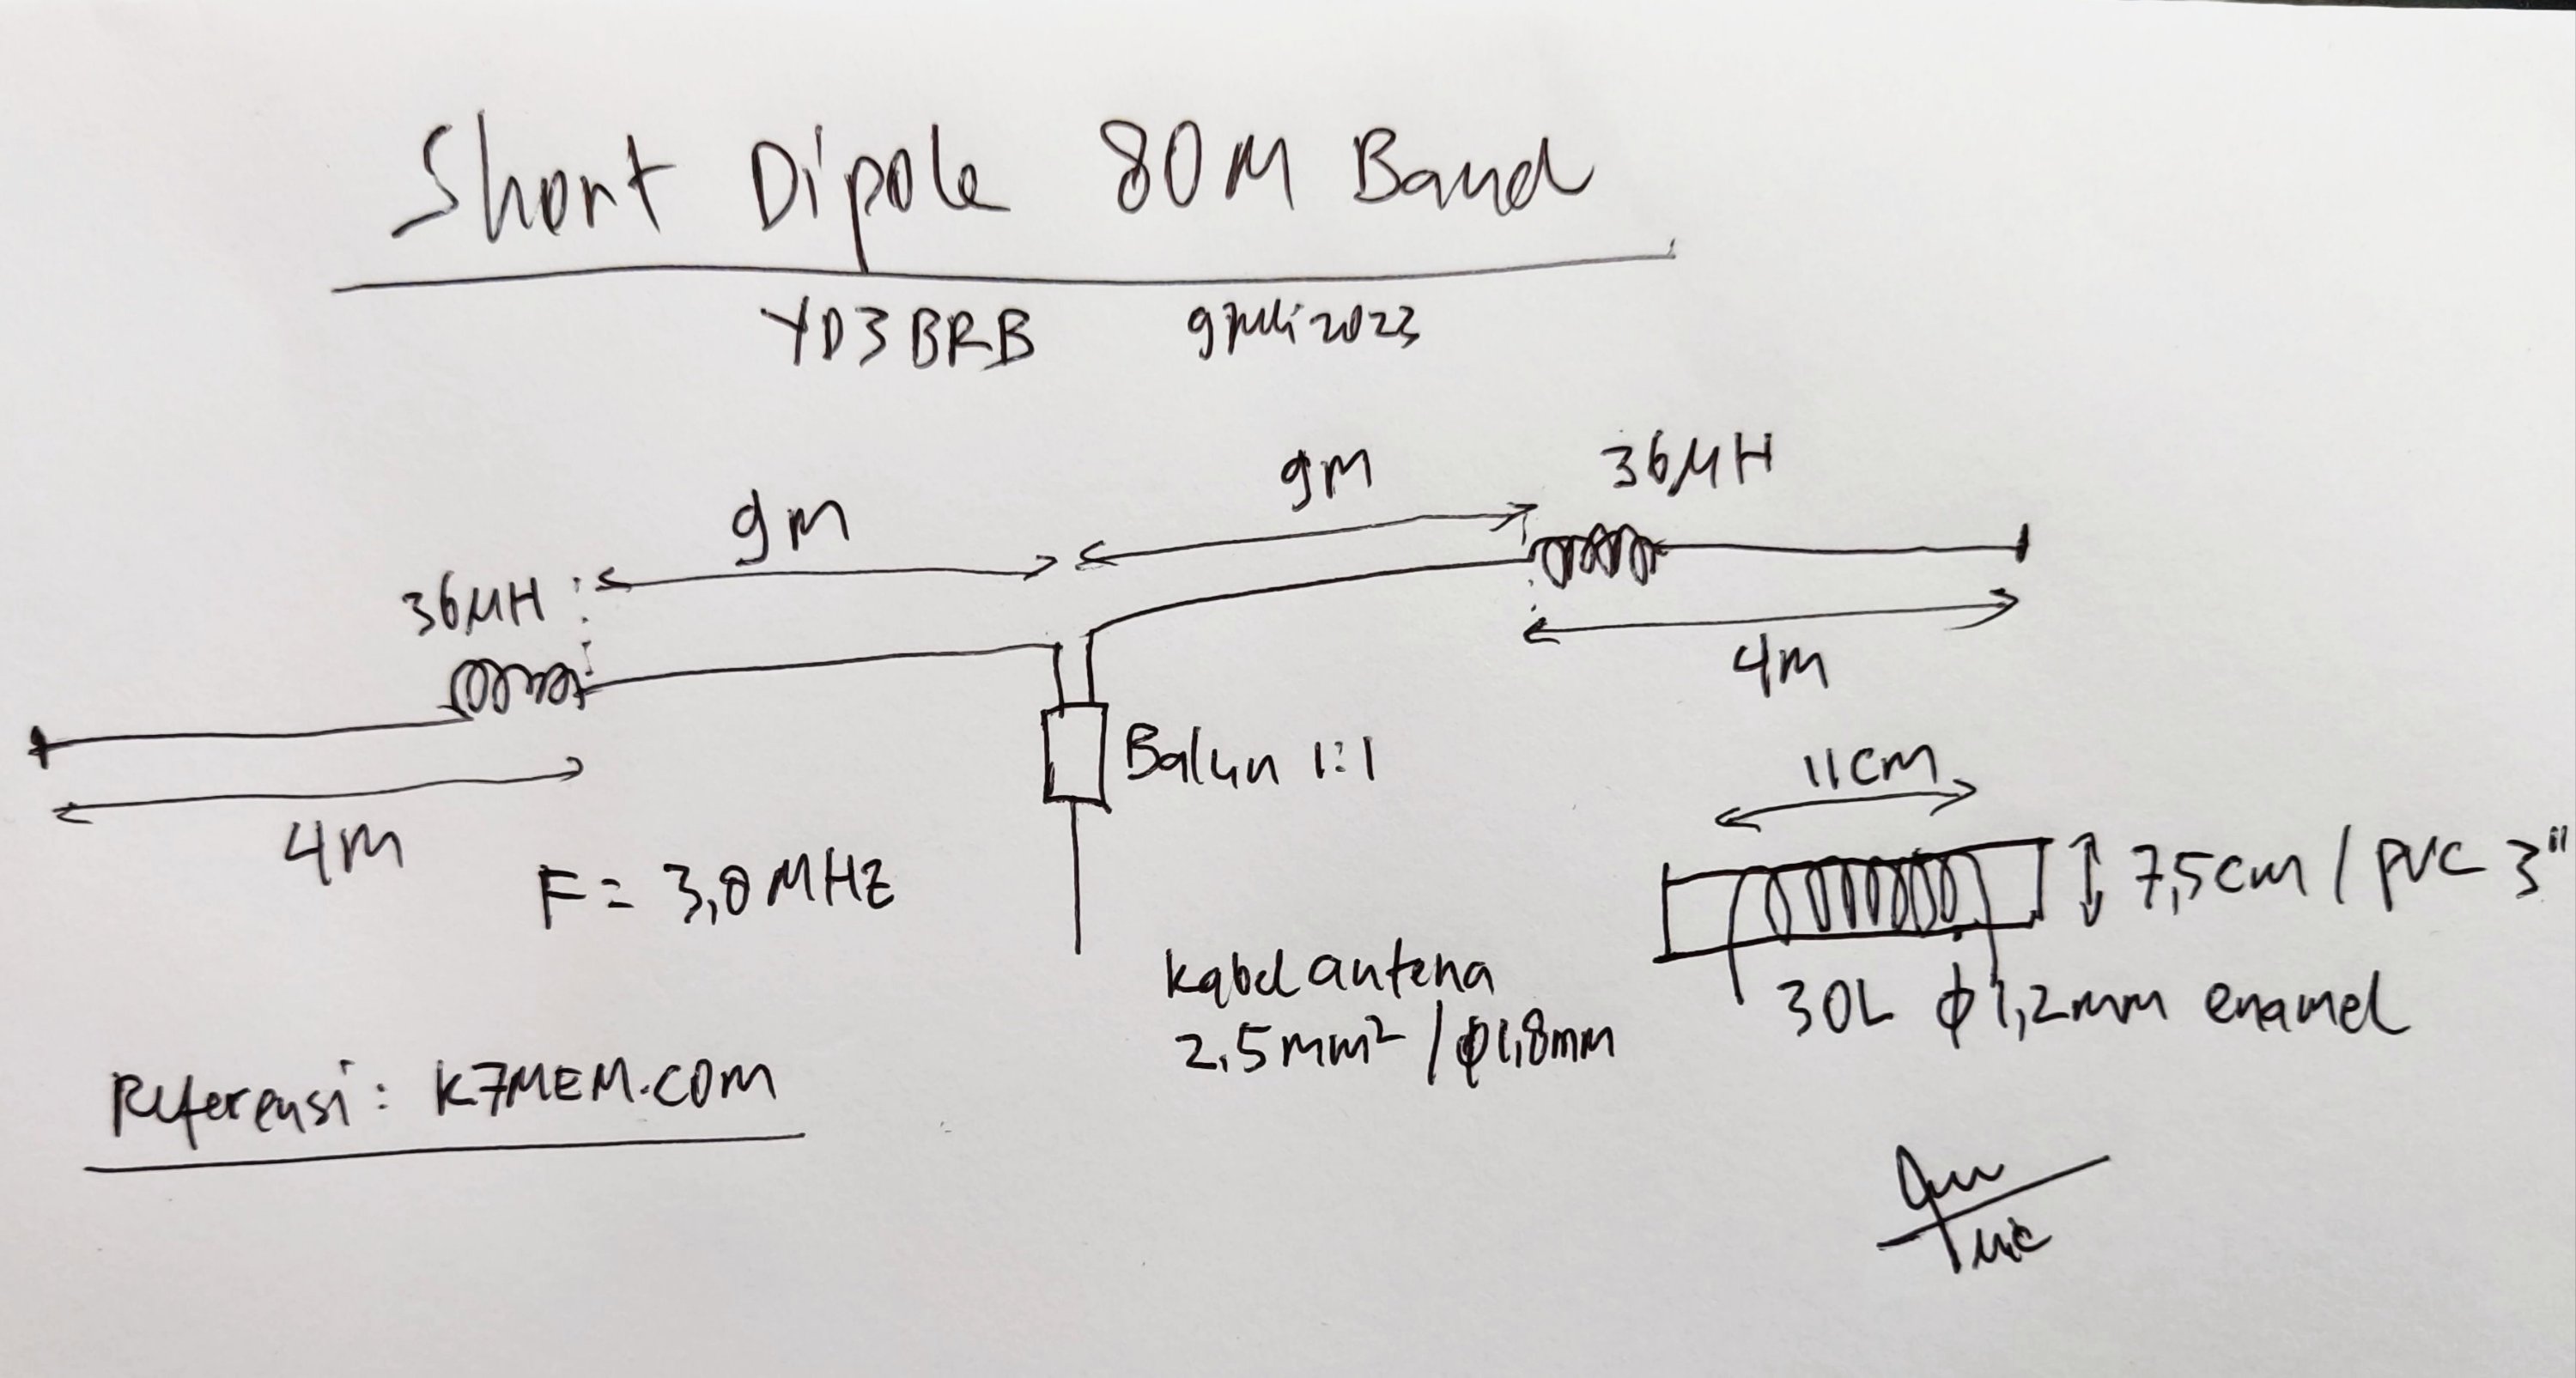 Short Dipole 80M Band
YD3BRB 9 Juli 2023
9m
36μH
9m
36μH
4m
Balun 1:1
11cm
4m
F = 3,8 MHz
7,5cm / PVC 3"
kabel antena
2,5mm² / φ1,8mm
30L φ1,2mm enamel
Referensi: K7MEM.COM